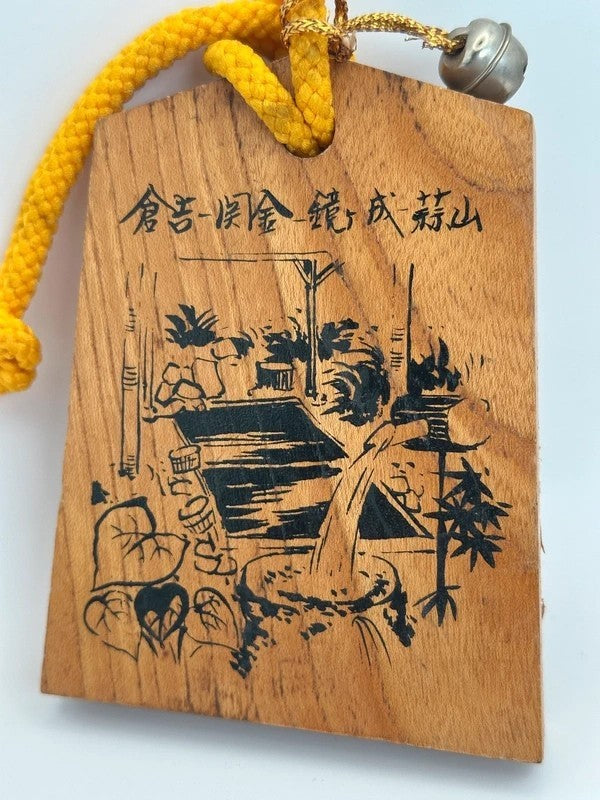 倉吉-関金-鏡ヶ成-蒜山